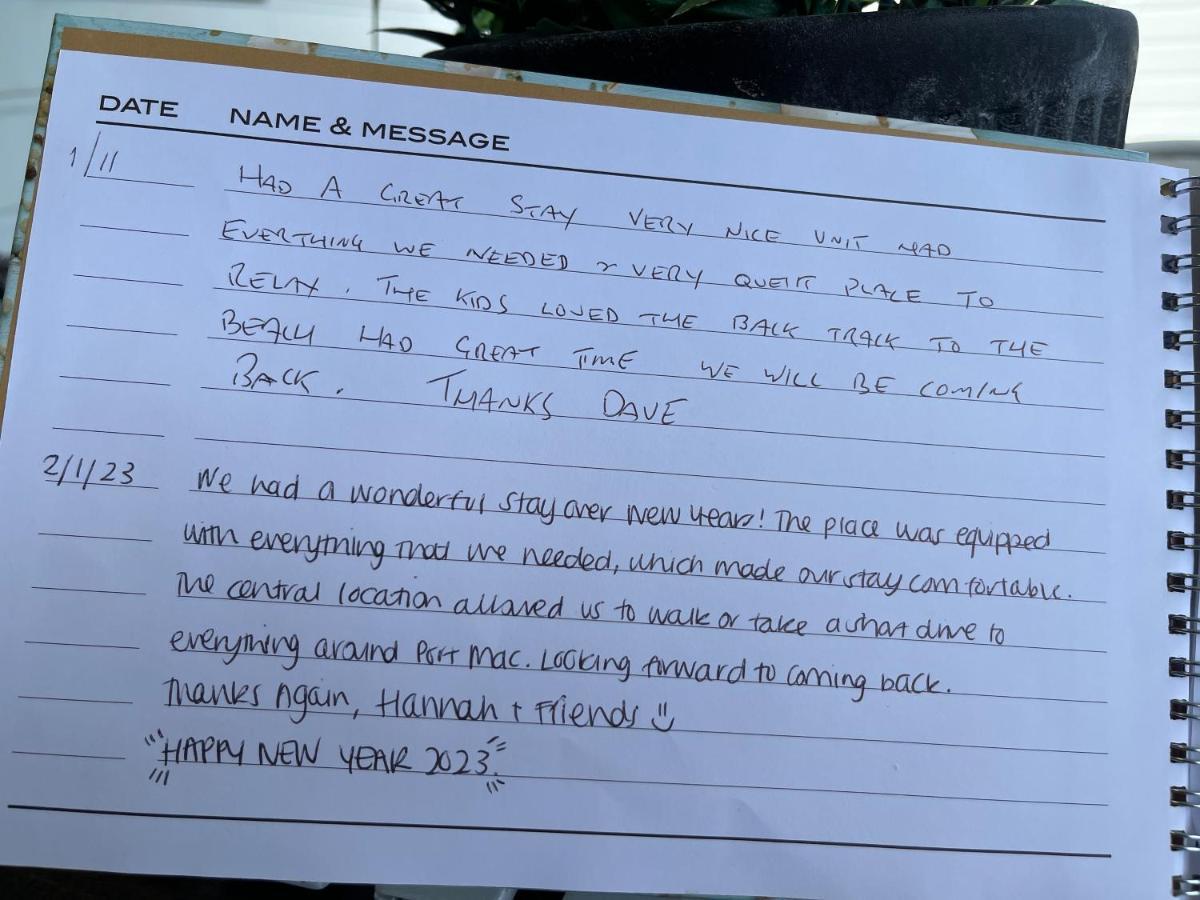 DATE NAME & MESSAGE
1/11 HAD A GREAT STAY VERY NICE UNIT HAD
EVERTHING WE NEEDED & VERY QUEIT PLACE TO
RELAX. THE KIDS LOVED THE BACK TRACK TO THE
BEACH HAD GREAT TIME WE WILL BE COMING
BACK. THANKS DAVE
2/1/23 We had a wonderful stay over New Years! The place was equipped
with everything that we needed, which made our stay comfortable.
The central location allowed us to walk or take a short drive to
everything around Port Mac. Looking forward to coming back.
Thanks Again, Hannah + Friends
"HAPPY NEW YEAR 2023"